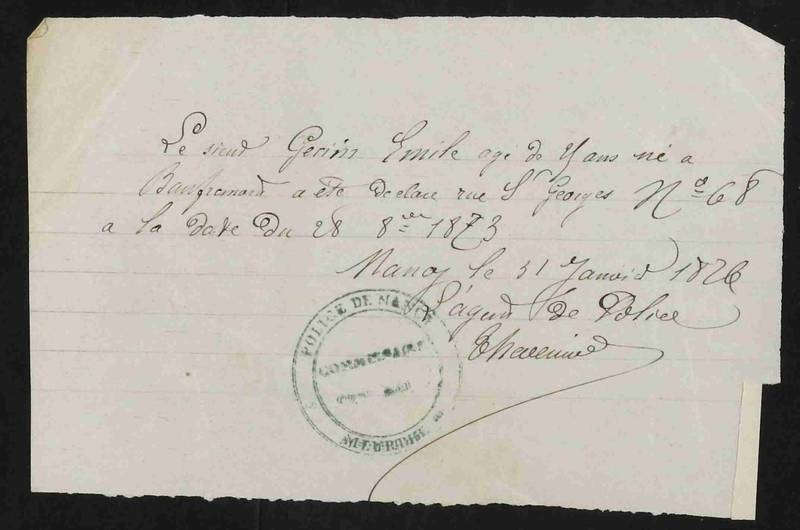 Le sieur Gerin Emile agé de 4 ans né a
a été déclaré rue St Georges No 68
a la date du 28 8bre 1873
Nancy le 31 Janvier 1876
L'agent de Police
POLICE DE NANCY
COMMISSAIRE
MEURTHE